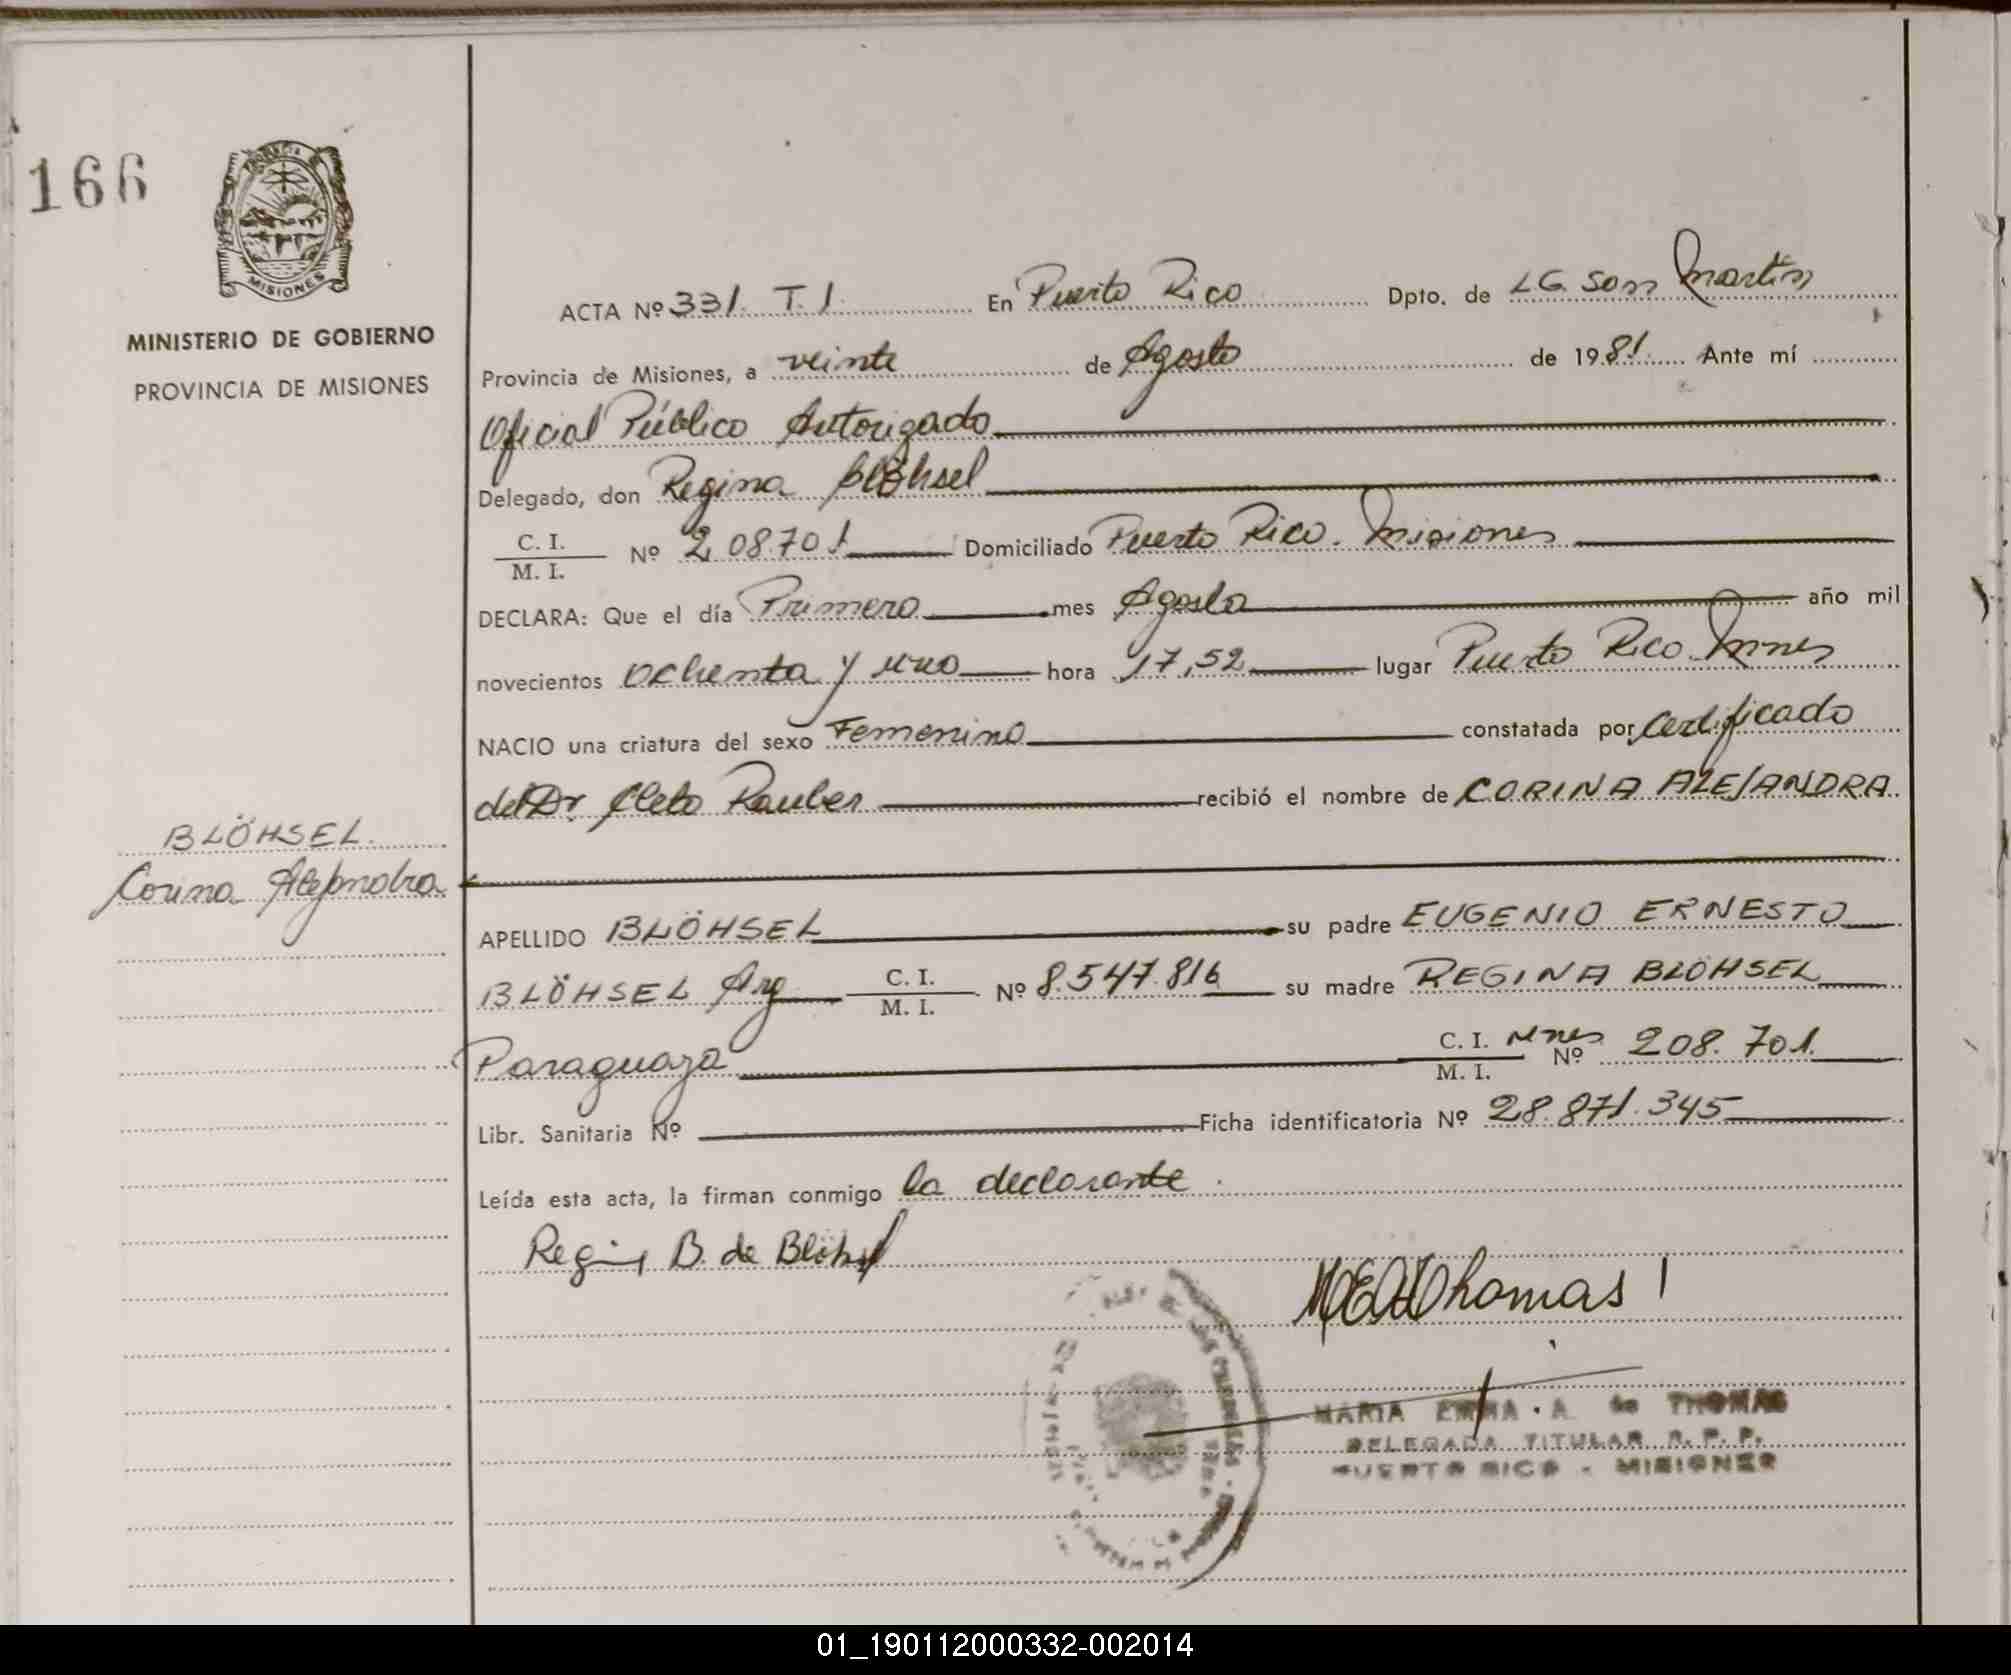 166
PROVINCIA D
MISIONES
MINISTERIO DE GOBIERNO
PROVINCIA DE MISIONES
ACTA Nº 331. T. I. En Puerto Rico Dpto. de LG. San Martin
Provincia de Misiones, a veinte de Agosto de 1981. Ante mí
Oficial Público Autorizado
Delegado, don Regina Blöhsel
C. I.
M. I. Nº 208.701 Domiciliado Puerto Rico. Misiones
DECLARA: Que el día Primero mes Agosto año mil
novecientos ochenta y uno hora 17,52 lugar Puerto Rico. Mnes
NACIO una criatura del sexo Femenino constatada por Certificado
del Dr. Cleto Rauber recibió el nombre de CORINA ALEJANDRA
BLÖHSEL.
Corina Alejandra
APELLIDO BLÖHSEL su padre EUGENIO ERNESTO
BLÖHSEL Arg C. I.
M. I. Nº 8.547.816 su madre REGINA BLÖHSEL
Paraguaya C. I. Mnes
M. I. Nº 208.701
Libr. Sanitaria Nº Ficha identificatoria Nº 28.871.345
Leída esta acta, la firman conmigo la declarante.
Regina B. de Blöhsel
MEAThomas
MARIA EMMA A. de THOMAS
DELEGADA TITULAR R. P. P.
PUERTO RICO - MISIONES
01_190112000332-002014